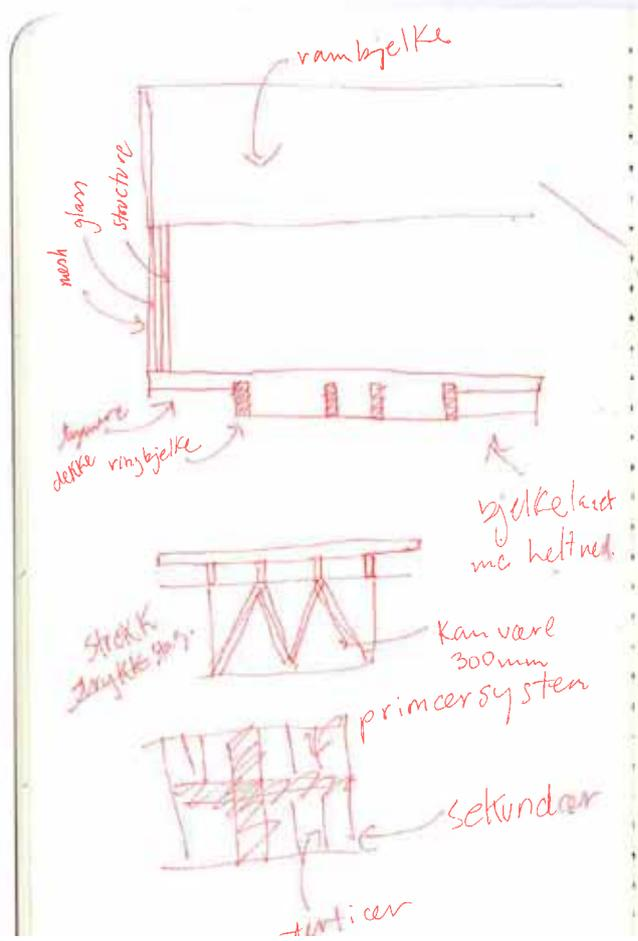 rambjelke
mesh
glass
structure
dekke
ringbjelke
bjelkelaget
må helt ned.
strekk
trykkstag.
kan være
300 mm
primærsystem
sekundær
tertiær